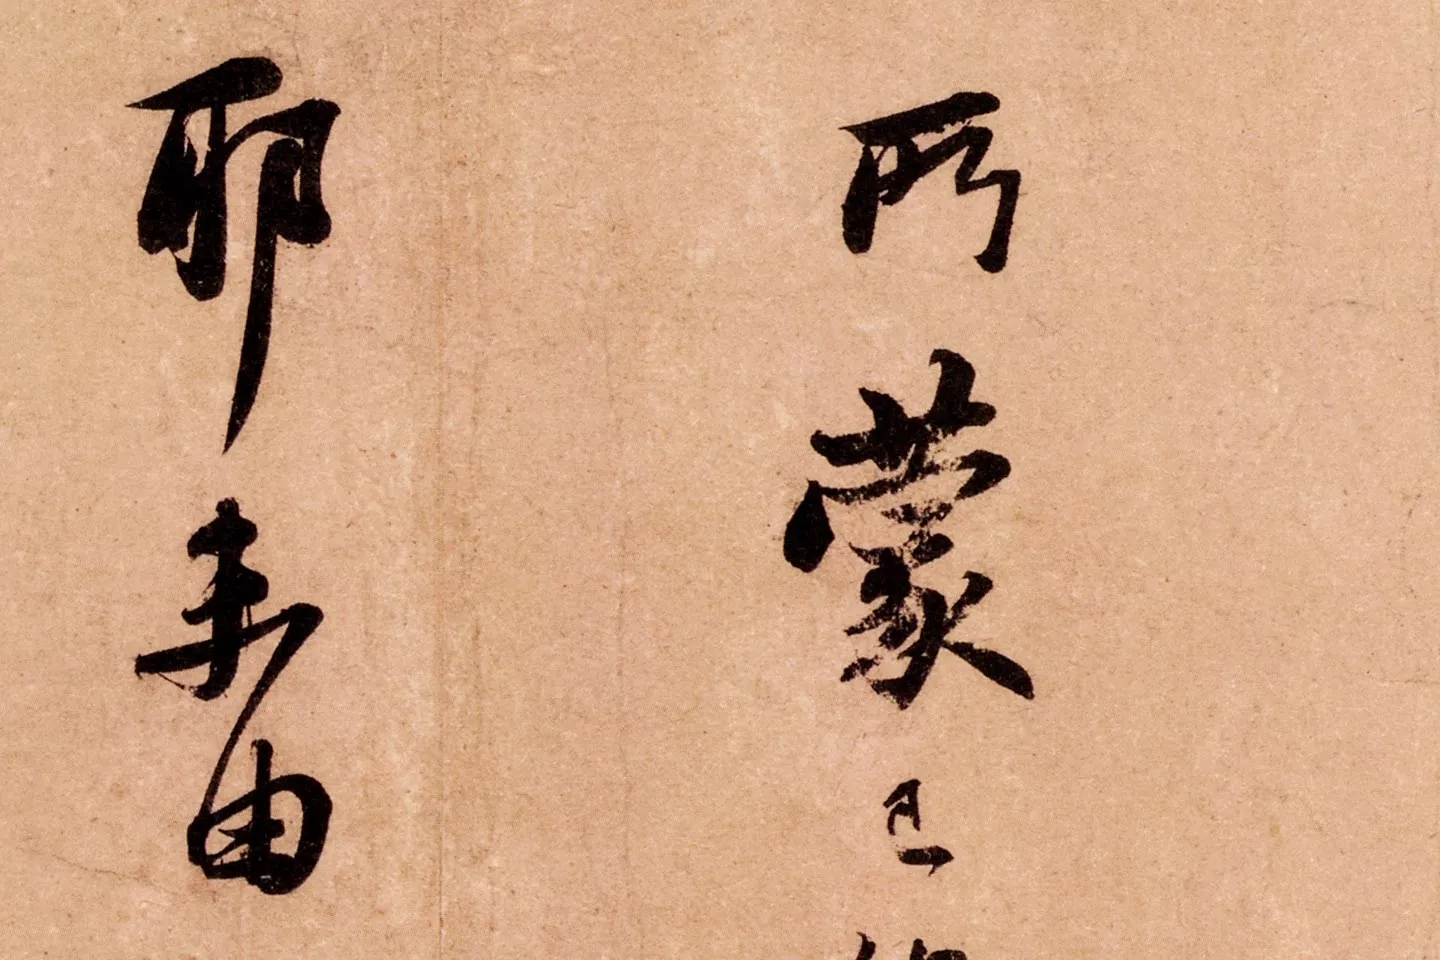 所蒙已
耶未由